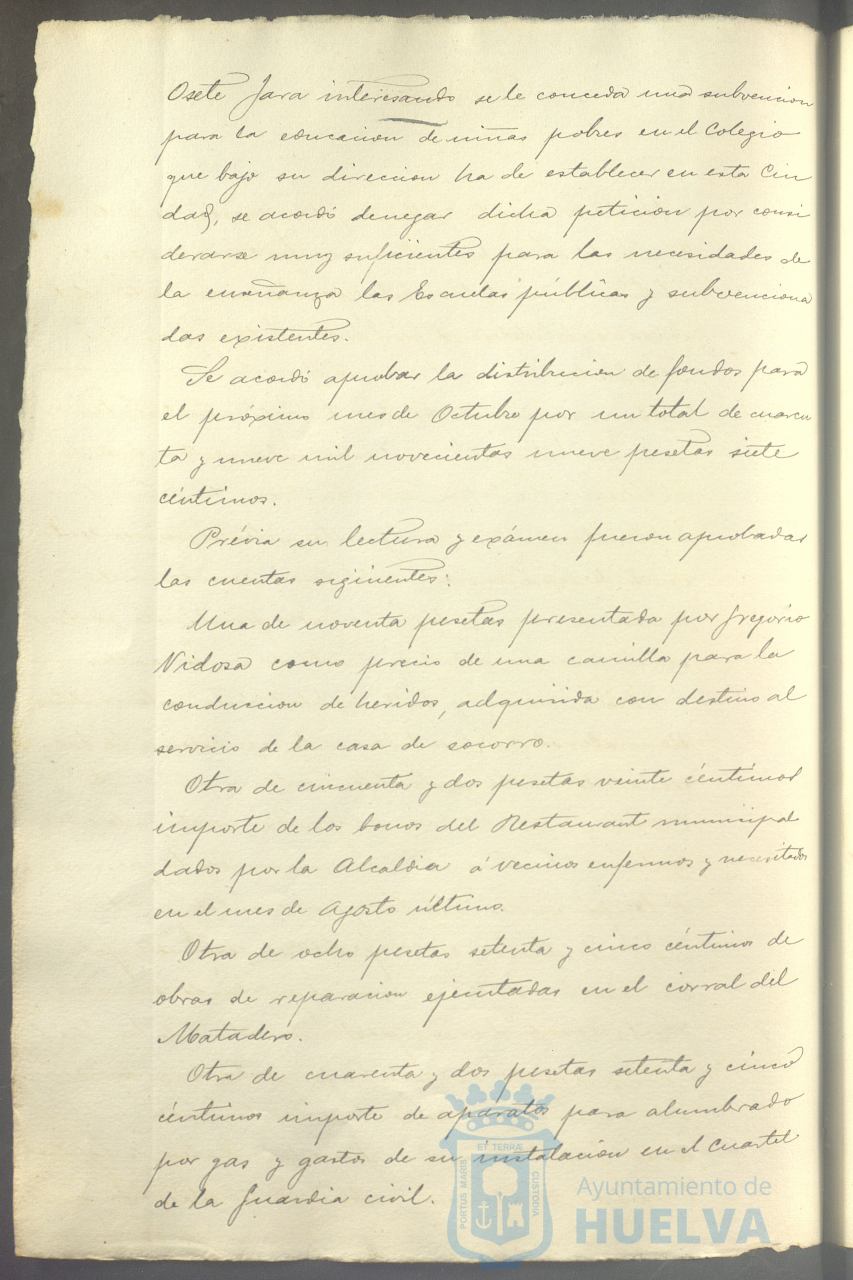 Osete Jara interesando se le conceda una subvencion
para la educacion de niñas pobres en el Colegio
que bajo su direccion ha de establecer en esta Ciu
dad, se acordó denegar dicha peticion por consi
derarse muy suficientes para las necesidades de
la enseñanza las Escuelas públicas y subvenciona
das existentes.
Se acordó aprobar la distribucion de fondos para
el próximo mes de Octubre por un total de cuaren
ta y nueve mil novecientas nueve pesetas siete
céntimos.
Prévia su lectura y exámen fueron aprobadas
las cuentas siguientes:
Una de noventa pesetas presentada por Gregorio
Vidosa como precio de una camilla para la
conduccion de heridos, adquirida con destino al
servicio de la casa de socorro.
Otra de cincuenta y dos pesetas veinte céntimos
importe de los bonos del Restaurant municipal
dados por la Alcaldia á vecinos enfermos y necesitados
en el mes de Agosto último.
Otra de ocho pesetas setenta y cinco céntimos de
obras de reparacion ejecutadas en el corral del
Matadero.
Otra de cuarenta y dos pesetas setenta y cinco
céntimos importe de aparatos para alumbrado
por gas y gastos de su instalacion en el Cuartel
de la Guardia civil.
PORTUS MARIS ET TERRÆ CUSTODIA
Ayuntamiento de
HUELVA